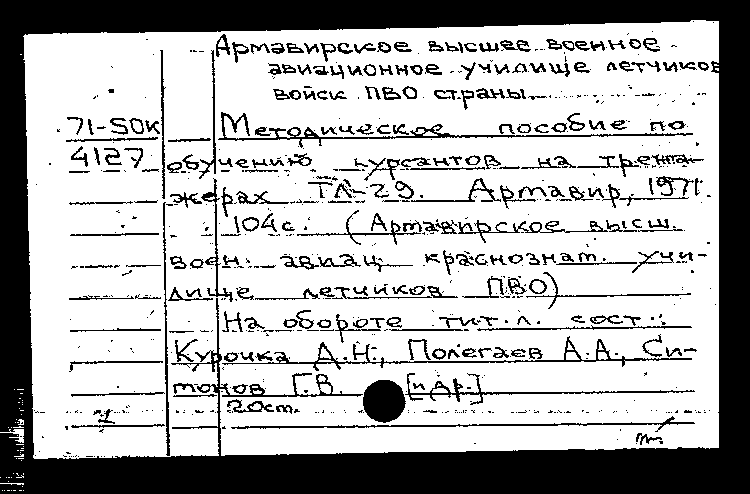 Армавирское высшее военное
авиационное училище летчиков
войск ПВО страны.
71-50К Методическое пособие по
4127 обучению курсантов на трена-
жерах ТЛ-29. Армавир, 1971.
104с. (Армавирское высш.
воен. авиац. краснознам. учи-
лище летчиков ПВО)
На обороте тит.л. сост.:
Курочка Д.Н., Полегаев А.А., Си-
монов Г.В. [и др.]
20см.
1